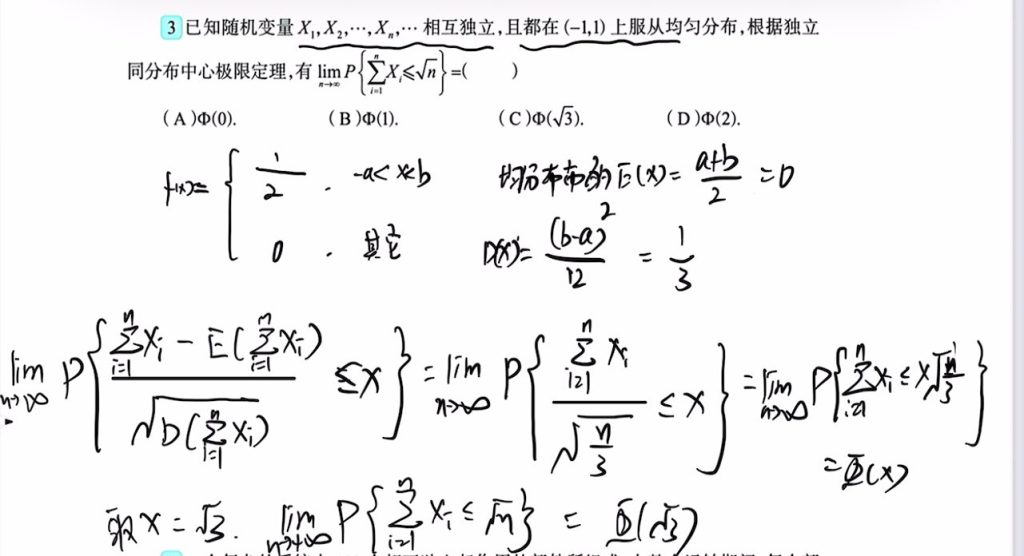 3 已知随机变量 X₁,X₂,⋯,Xₙ,⋯ 相互独立,且都在 (-1,1) 上服从均匀分布,根据独立
同分布中心极限定理,有 lim_{n→∞} P{∑_{i=1}^{n} Xᵢ ≤ √n} =(　　)
(A)Φ(0). (B)Φ(1). (C)Φ(√3). (D)Φ(2).
f(x)= { 1/2 , -a<x<b 均匀分布的 E(X)= (a+b)/2 =0
0 , 其它 D(X)= (b-a)²/12 = 1/3
lim_{n→∞} P{ (∑_{i=1}^{n} Xᵢ - E(∑_{i=1}^{n} Xᵢ)) / √(D(∑_{i=1}^{n} Xᵢ)) ≤ x } = lim_{n→∞} P{ ∑_{i=1}^{n} Xᵢ / √(n/3) ≤ x } = lim_{n→∞} P{ ∑_{i=1}^{n} Xᵢ ≤ x√(n/3) }
= Φ(x)
取 x = √3. lim_{n→∞} P{ ∑_{i=1}^{n} Xᵢ ≤ √n } = Φ(√3)